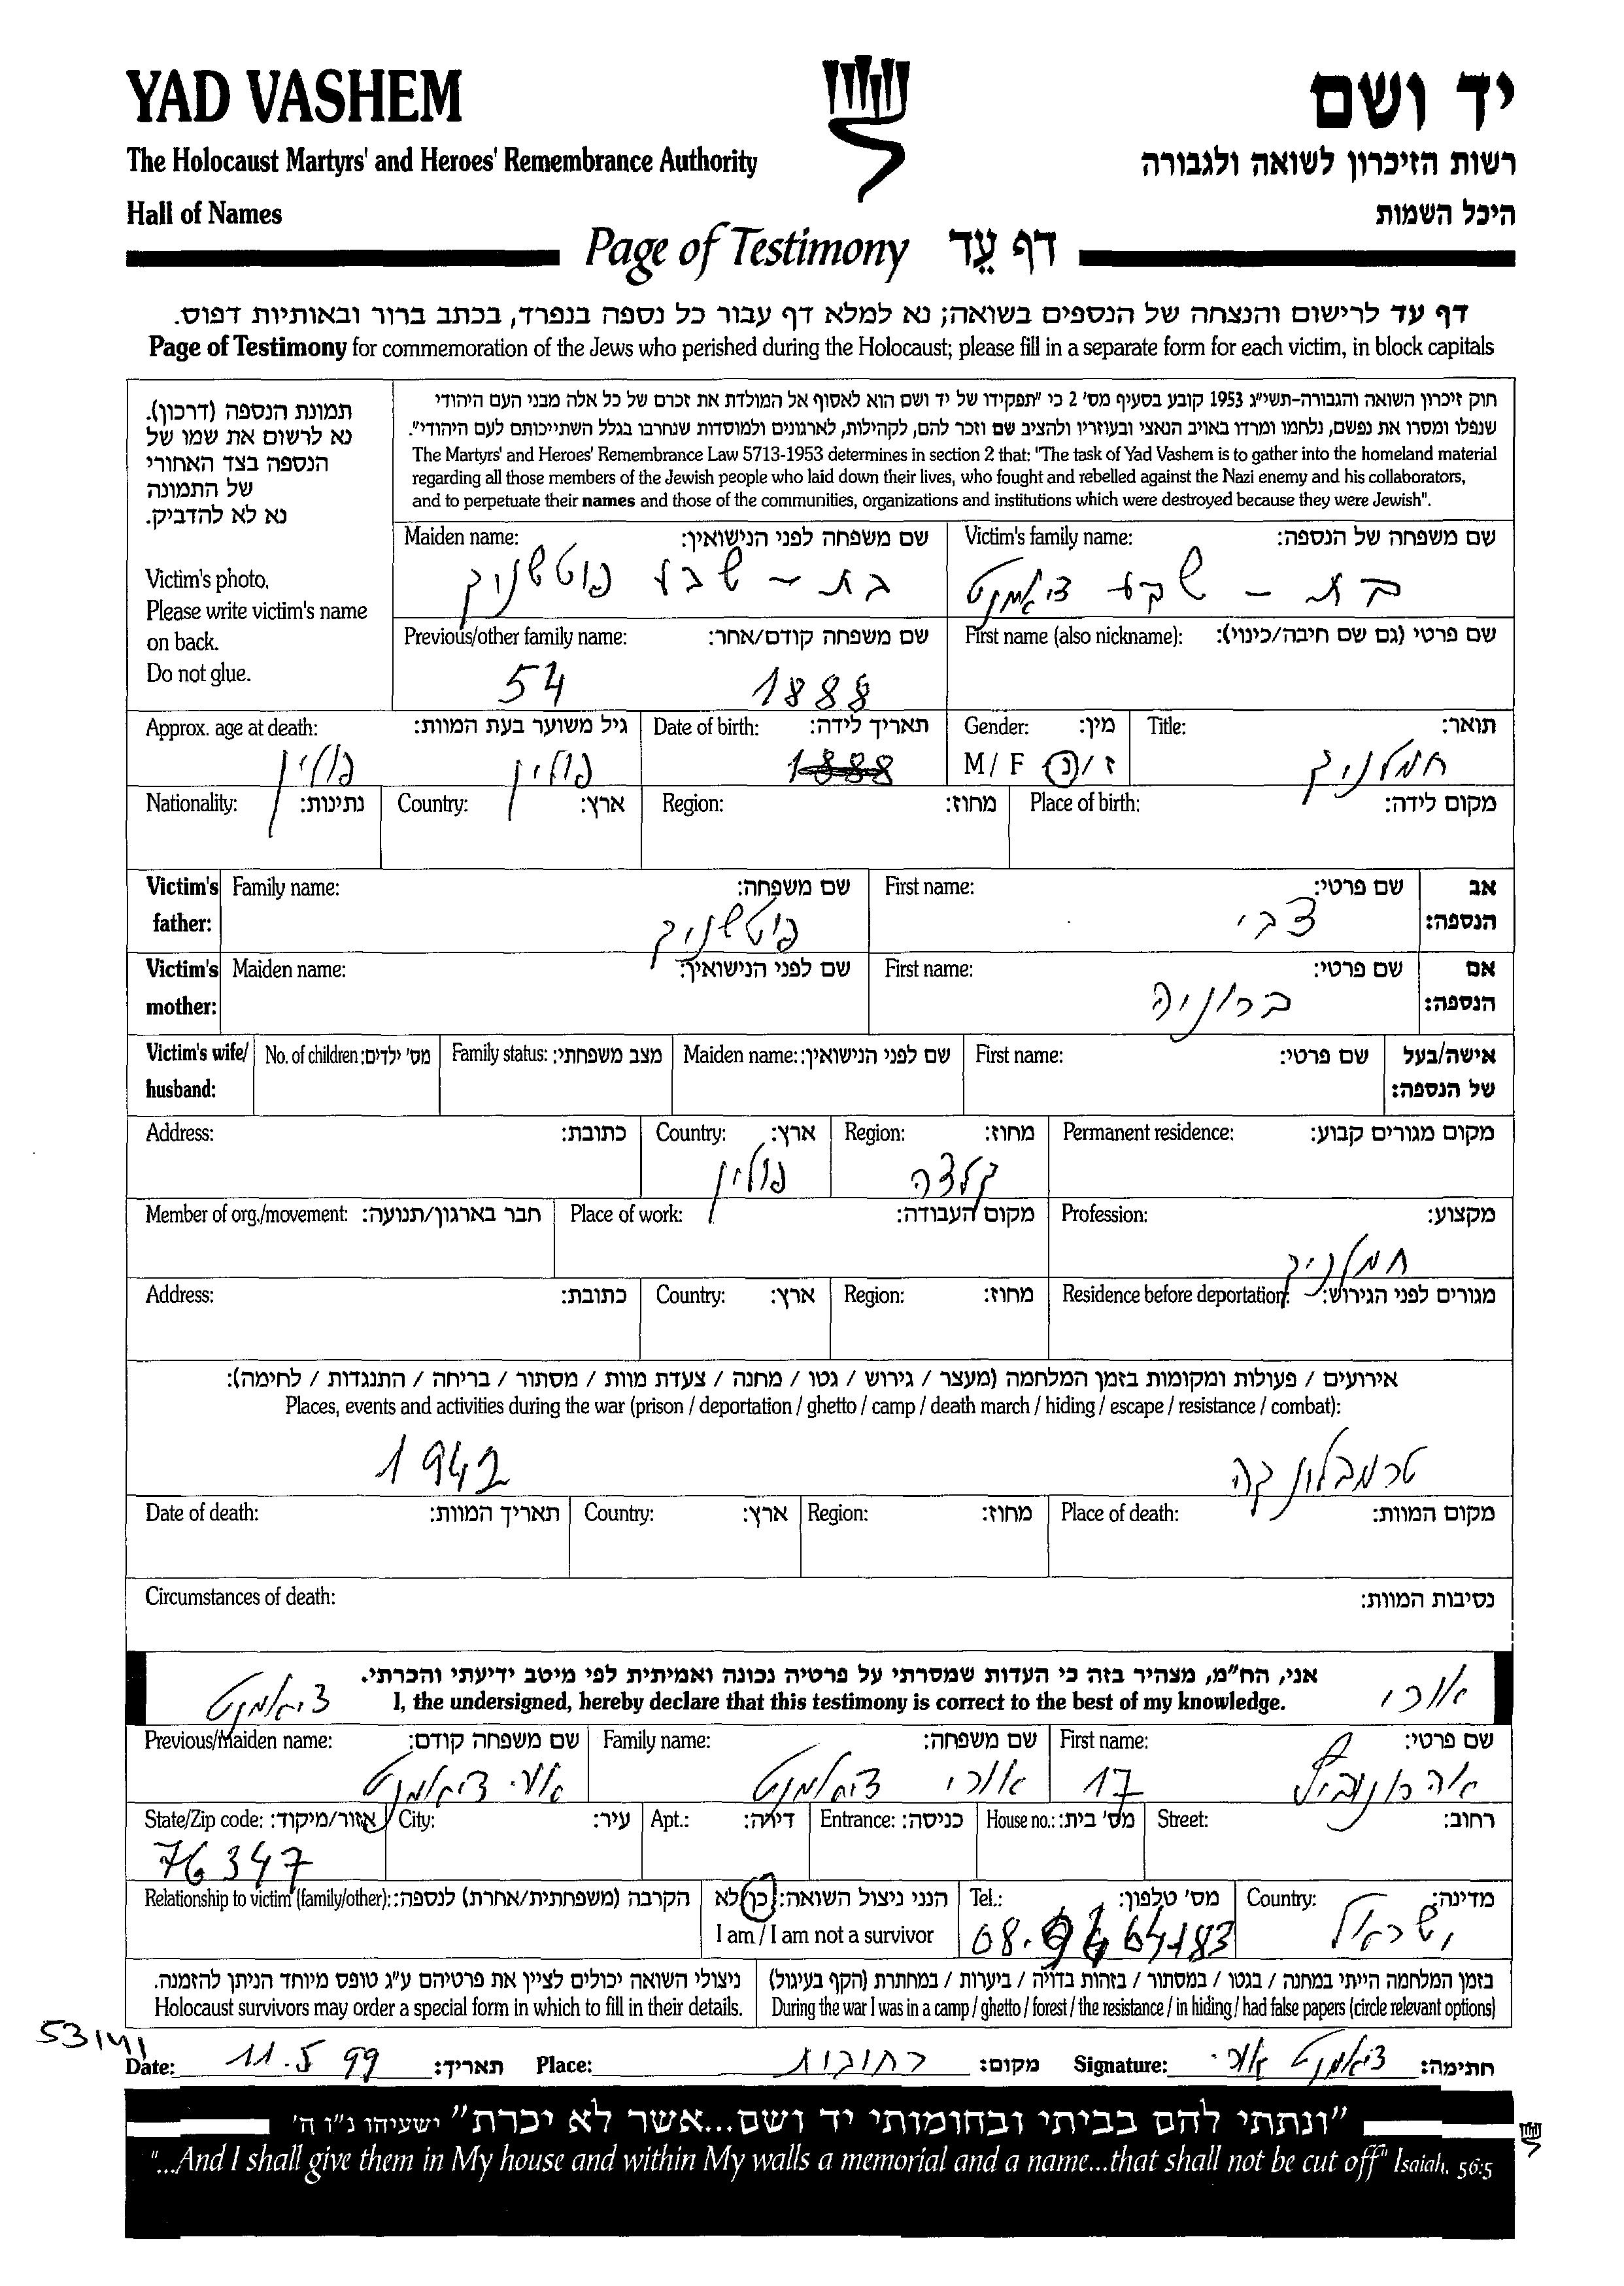 YAD VASHEM יד ושם
The Holocaust Martyrs' and Heroes' Remembrance Authority רשות הזיכרון לשואה ולגבורה
Hall of Names היכל השמות
Page of Testimony דף עֵד
דף עד לרישום והנצחה של הנספים בשואה; נא למלא דף עבור כל נספה בנפרד, בכתב ברור ובאותיות דפוס.
Page of Testimony for commemoration of the Jews who perished during the Holocaust; please fill in a separate form for each victim, in block capitals
תמונת הנספה (דרכון).
נא לרשום את שמו של
הנספה בצד האחורי
של התמונה
נא לא להדביק.
Victim's photo.
Please write victim's name
on back.
Do not glue.
חוק זיכרון השואה והגבורה-תשי״ג 1953 קובע בסעיף מס' 2 כי "תפקידו של יד ושם הוא לאסוף אל המולדת את זכרם של כל אלה מבני העם היהודי
שנפלו ומסרו את נפשם, נלחמו ומרדו באויב הנאצי ובעוזריו ולהציב שם וזכר להם, לקהילות, לארגונים ולמוסדות שנחרבו בגלל השתייכותם לעם היהודי".
The Martyrs' and Heroes' Remembrance Law 5713-1953 determines in section 2 that: "The task of Yad Vashem is to gather into the homeland material
regarding all those members of the Jewish people who laid down their lives, who fought and rebelled against the Nazi enemy and his collaborators,
and to perpetuate their names and those of the communities, organizations and institutions which were destroyed because they were Jewish".
Maiden name: שם משפחה לפני הנישואין: Victim's family name: שם משפחה של הנספה:
בת - שבע פוטשניק בת - שבע דיאמנט
Previous/other family name: שם משפחה קודם/אחר: First name (also nickname): שם פרטי (גם שם חיבה/כינוי):
54 1888
Approx. age at death: גיל משוער בעת המוות: Date of birth: תאריך לידה: Gender: מין: Title: תואר:
פולין פולין 1888 M / F ז / נ חמלניק
Nationality: נתינות: Country: ארץ: Region: מחוז: Place of birth: מקום לידה:
Victim's father: Family name: שם משפחה: First name: שם פרטי: אב הנספה:
פוטשניק צבי
Victim's mother: Maiden name: שם לפני הנישואין: First name: שם פרטי: אם הנספה:
ברוניה
Victim's wife/ husband: No. of children: מס' ילדים: Family status: מצב משפחתי: Maiden name: שם לפני הנישואין: First name: שם פרטי: אישה/בעל של הנספה:
Address: כתובת: Country: ארץ: Region: מחוז: Permanent residence: מקום מגורים קבוע:
פולין קלצה
Member of org./movement: חבר בארגון/תנועה: Place of work: מקום העבודה: Profession: מקצוע:
חמלניק
Address: כתובת: Country: ארץ: Region: מחוז: Residence before deportation: מגורים לפני הגירוש:
אירועים / פעולות ומקומות בזמן המלחמה (מעצר / גירוש / גטו / מחנה / צעדת מוות / מסתור / בריחה / התנגדות / לחימה):
Places, events and activities during the war (prison / deportation / ghetto / camp / death march / hiding / escape / resistance / combat):
1942 טרמבלינקה
Date of death: תאריך המוות: Country: ארץ: Region: מחוז: Place of death: מקום המוות:
Circumstances of death: נסיבות המוות:
אני, הח״מ, מצהיר בזה כי העדות שמסרתי על פרטיה נכונה ואמיתית לפי מיטב ידיעתי והכרתי.
I, the undersigned, hereby declare that this testimony is correct to the best of my knowledge.
דיאמנט אורי
Previous/Maiden name: שם משפחה קודם: Family name: שם משפחה: First name: שם פרטי:
דיאמנט אורי דיאמנט 17 אהרונוביץ
State/Zip code: אזור/מיקוד: City: עיר: Apt.: דירה: Entrance: כניסה: House no.: מס' בית: Street: רחוב:
76347
Relationship to victim (family/other): הקרבה (משפחתית/אחרת) לנספה: הנני ניצול השואה: כן/לא Tel.: מס' טלפון: Country: מדינה:
I am / I am not a survivor 08. ישראל
ניצולי השואה יכולים לציין את פרטיהם ע״ג טופס מיוחד הניתן להזמנה. בזמן המלחמה הייתי במחנה / בגטו / במסתור / בזהות בדויה / ביערות / במחתרת (הקף בעיגול)
Holocaust survivors may order a special form in which to fill in their details. During the war I was in a camp / ghetto / forest / the resistance / in hiding / had false papers (circle relevant options)
Date: 11.5 99 תאריך: Place: רחובות מקום: Signature: דיאמנט חתימה:
"ונתתי להם בביתי ובחומותי יד ושם...אשר לא יכרת" ישעיהו נ״ו ה'
"...And I shall give them in My house and within My walls a memorial and a name...that shall not be cut off" Isaiah, 56:5